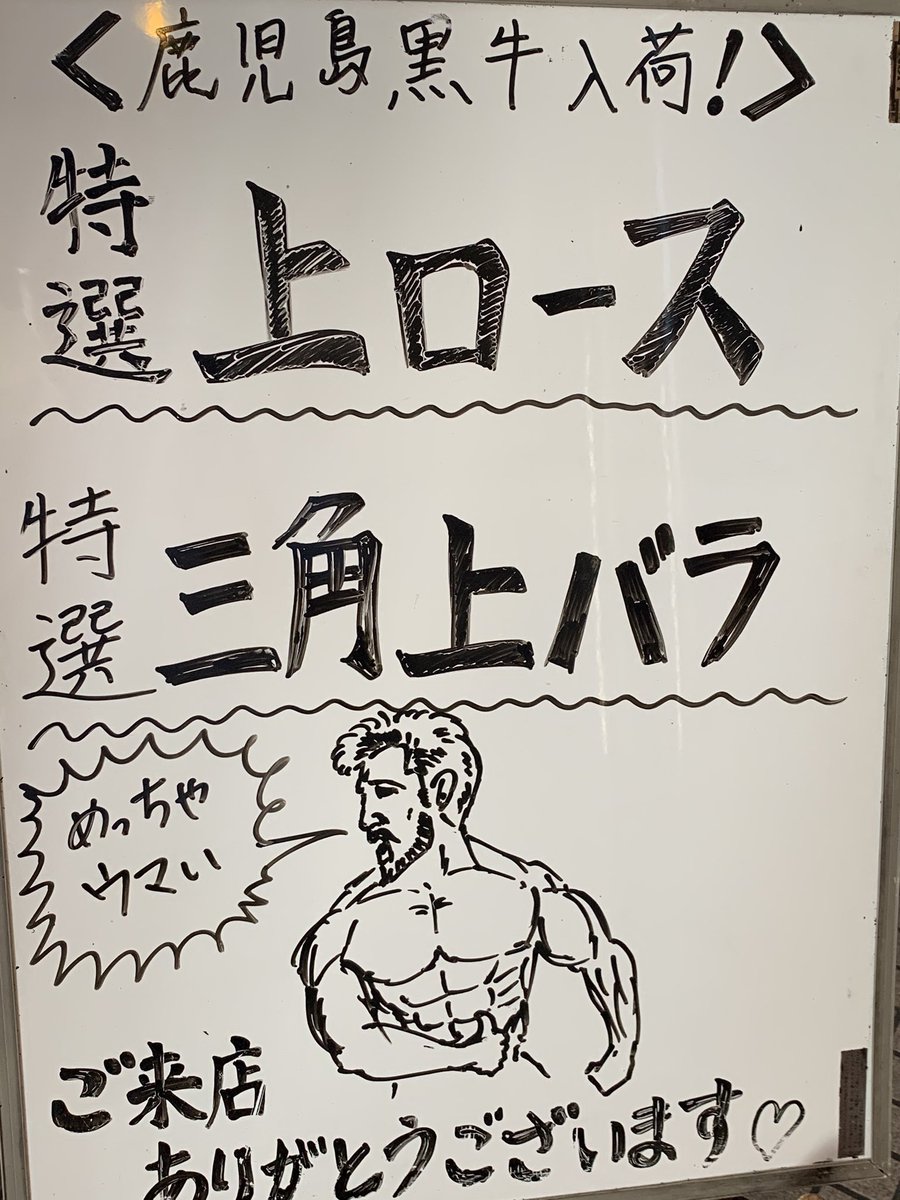 <鹿児島黒牛入荷!>
特選 上ロース
特選 三角上バラ
めっちゃ
ウマい
ご来店
ありがとうございます♡